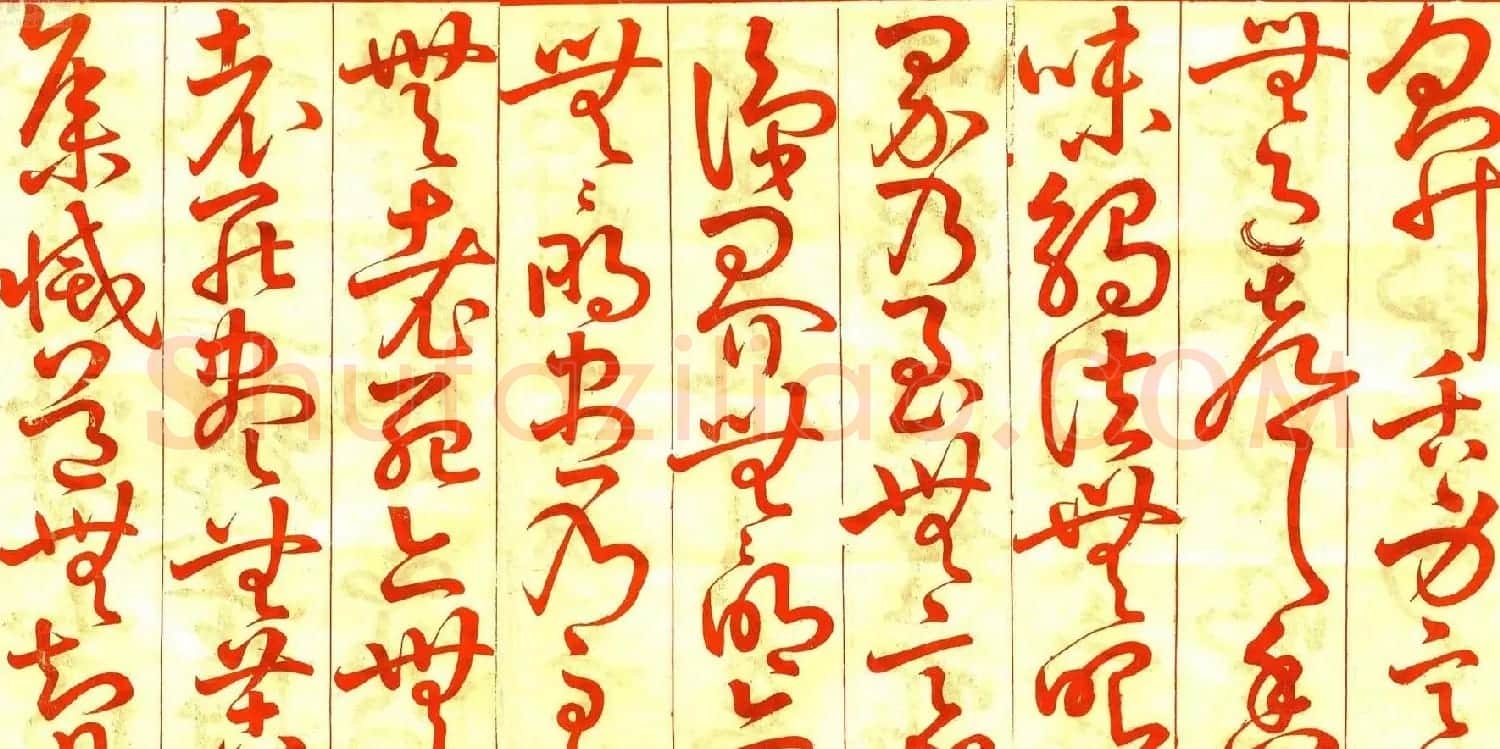 鼻舌身意
無色聲香
味觸法無眼
界乃至無意
識界無〻明亦
無〻明盡乃至
無老死亦無
老死盡無苦
集滅道無智
Shufaziliao.COM